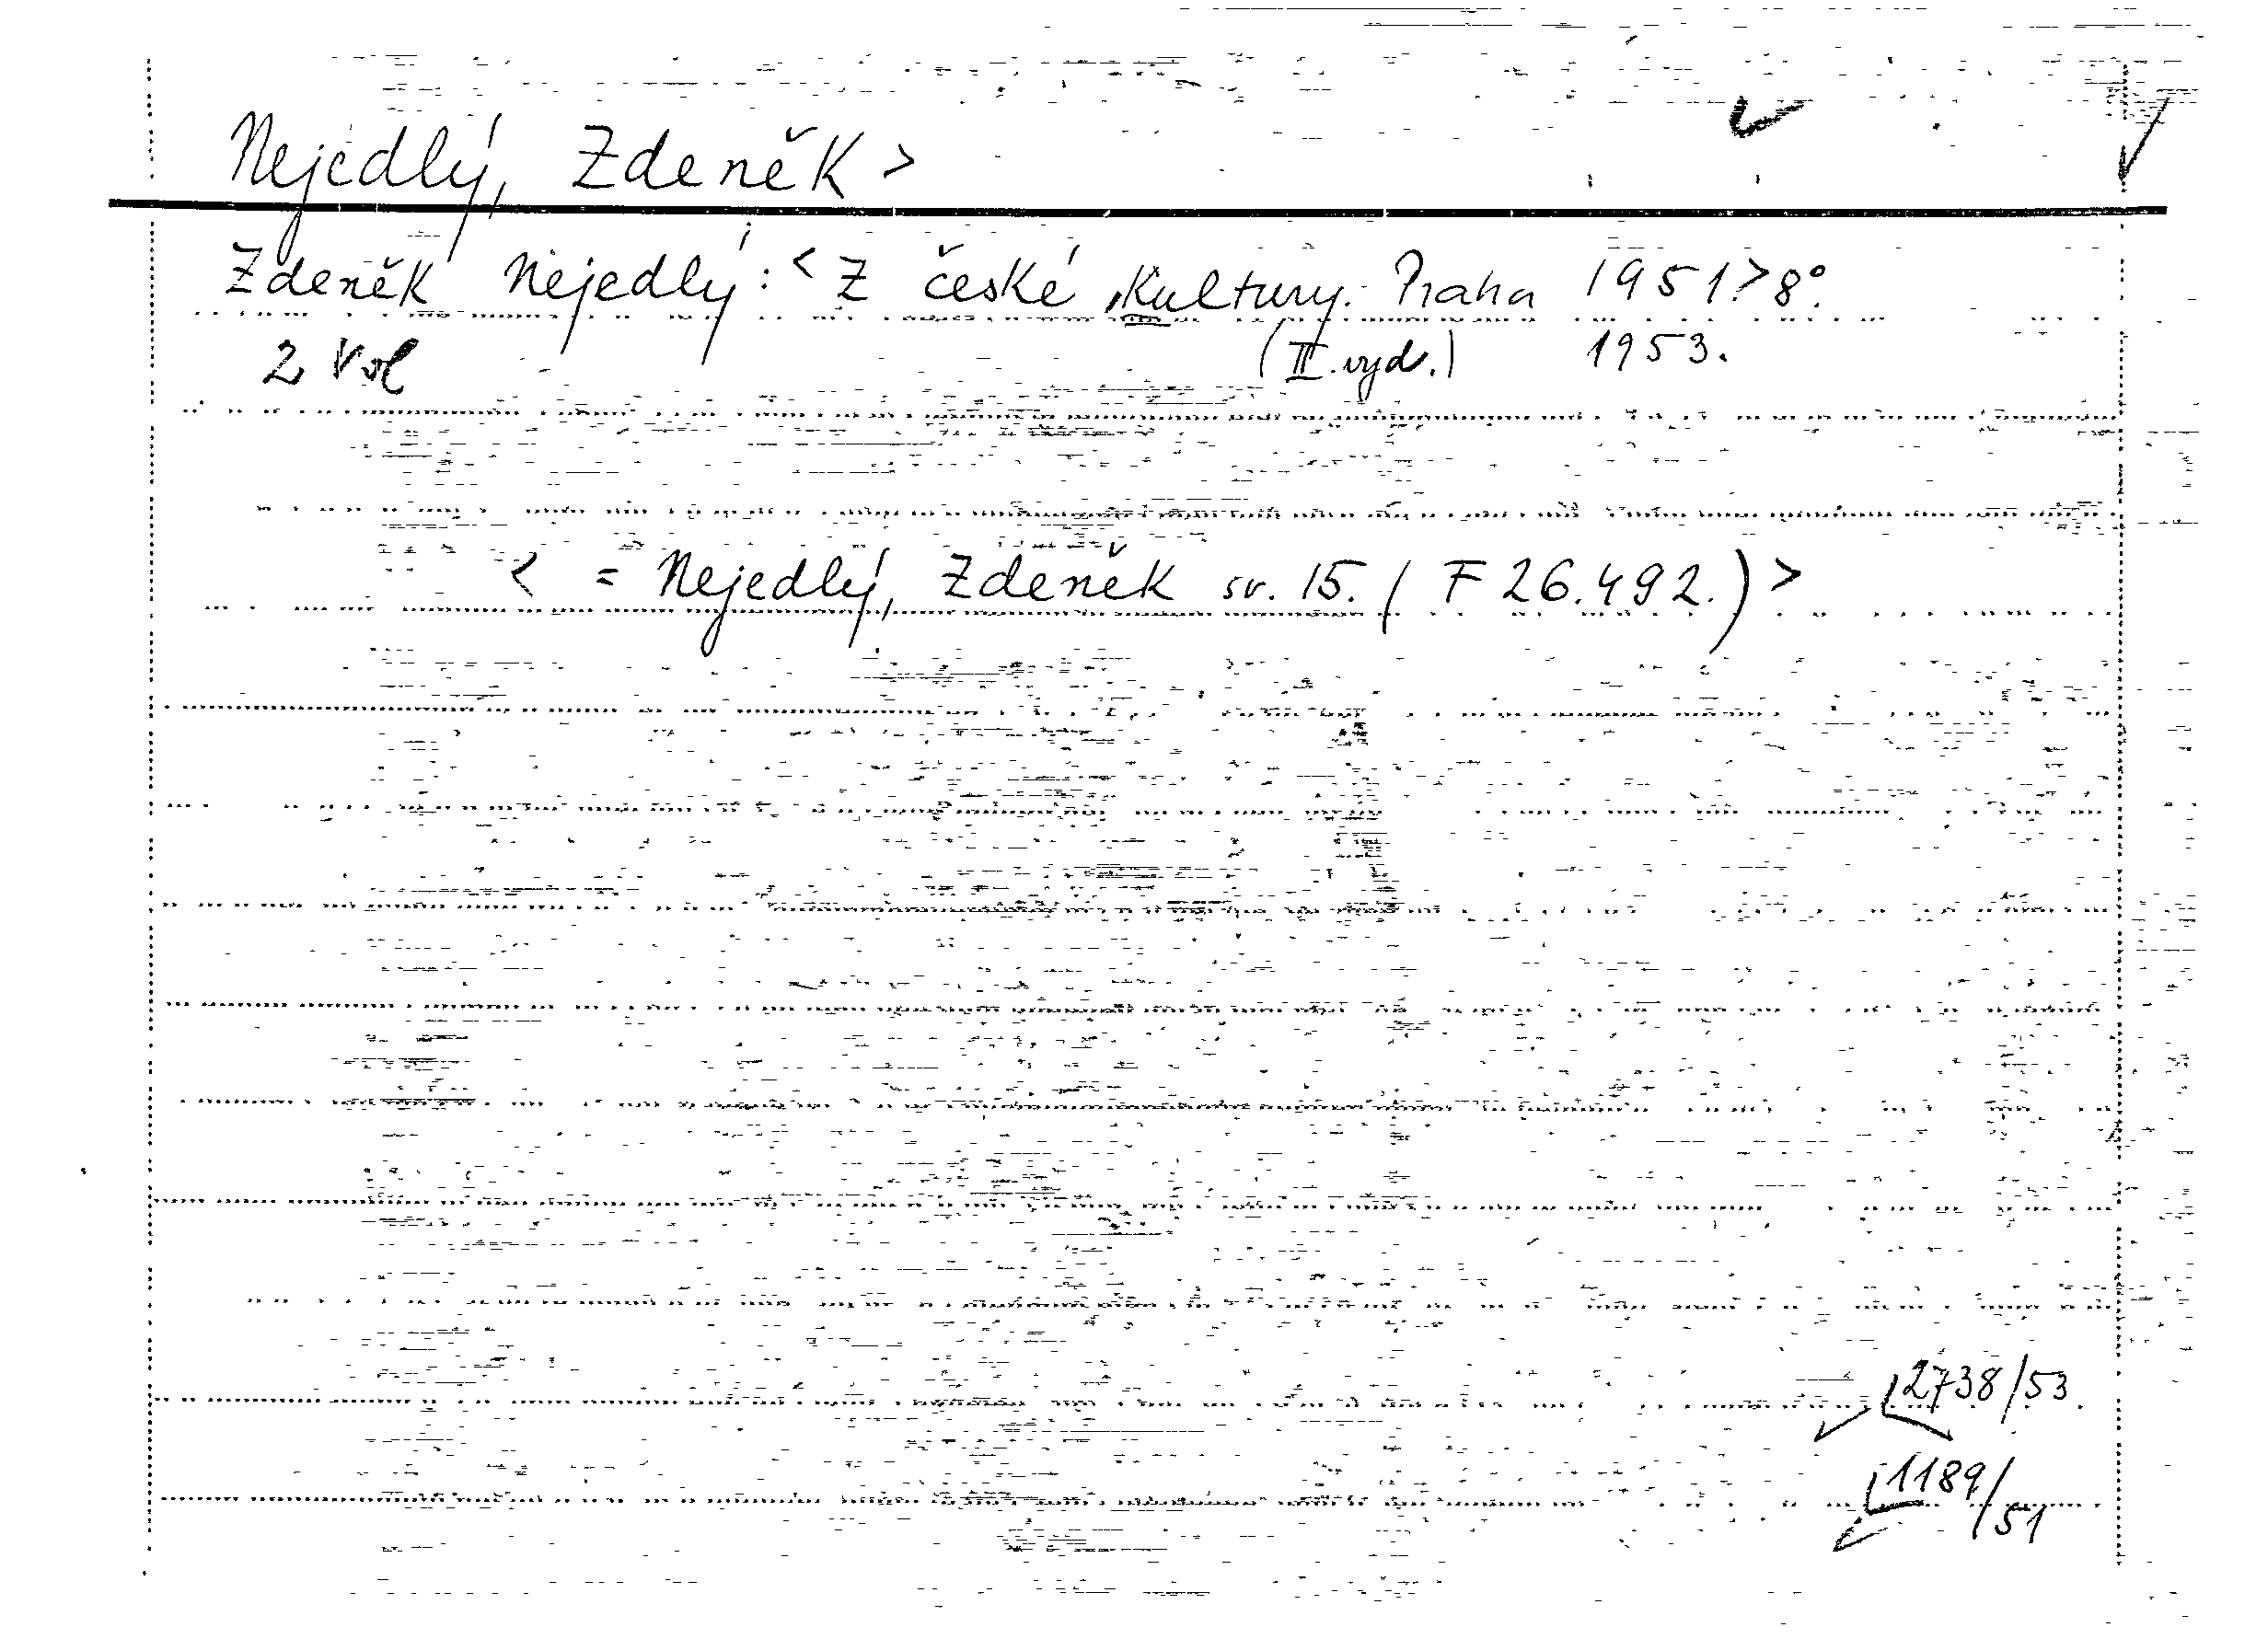 Nejedlý, Zdeněk >
Zdeněk Nejedlý: < Z české kultury. Praha 1951.> 8°.
2 Vol (II. vyd.) 1953.
< = Nejedlý, Zdeněk sv. 15. ( F 26.492.) >
2738/53.
1189/51